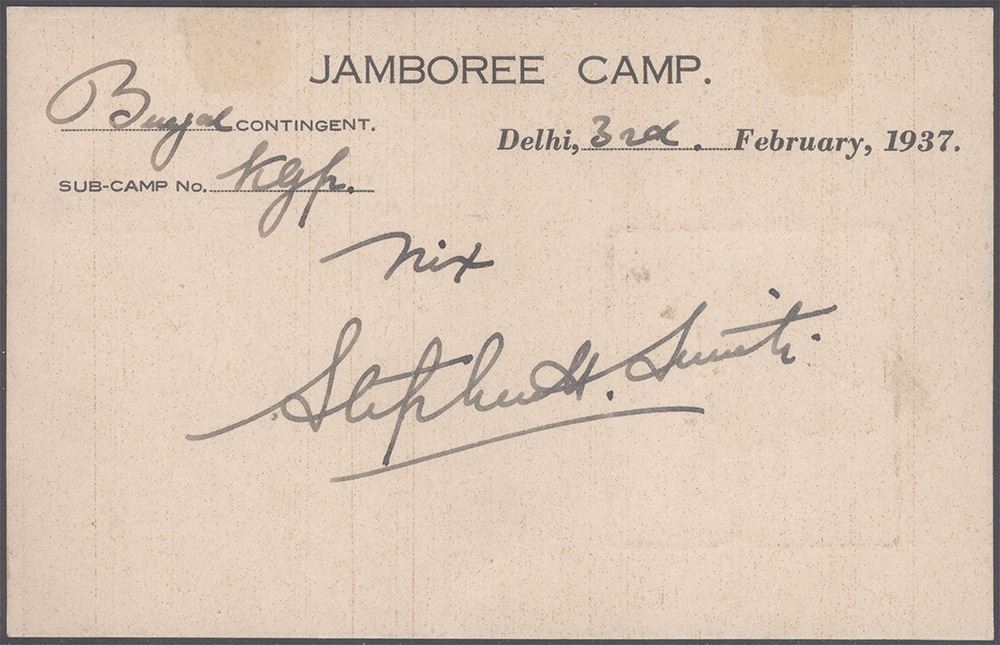 JAMBOREE CAMP.
Bengal CONTINGENT.
Delhi, 3rd. February, 1937.
SUB-CAMP No. Kgp.
Nix
Stephen H. Smith.